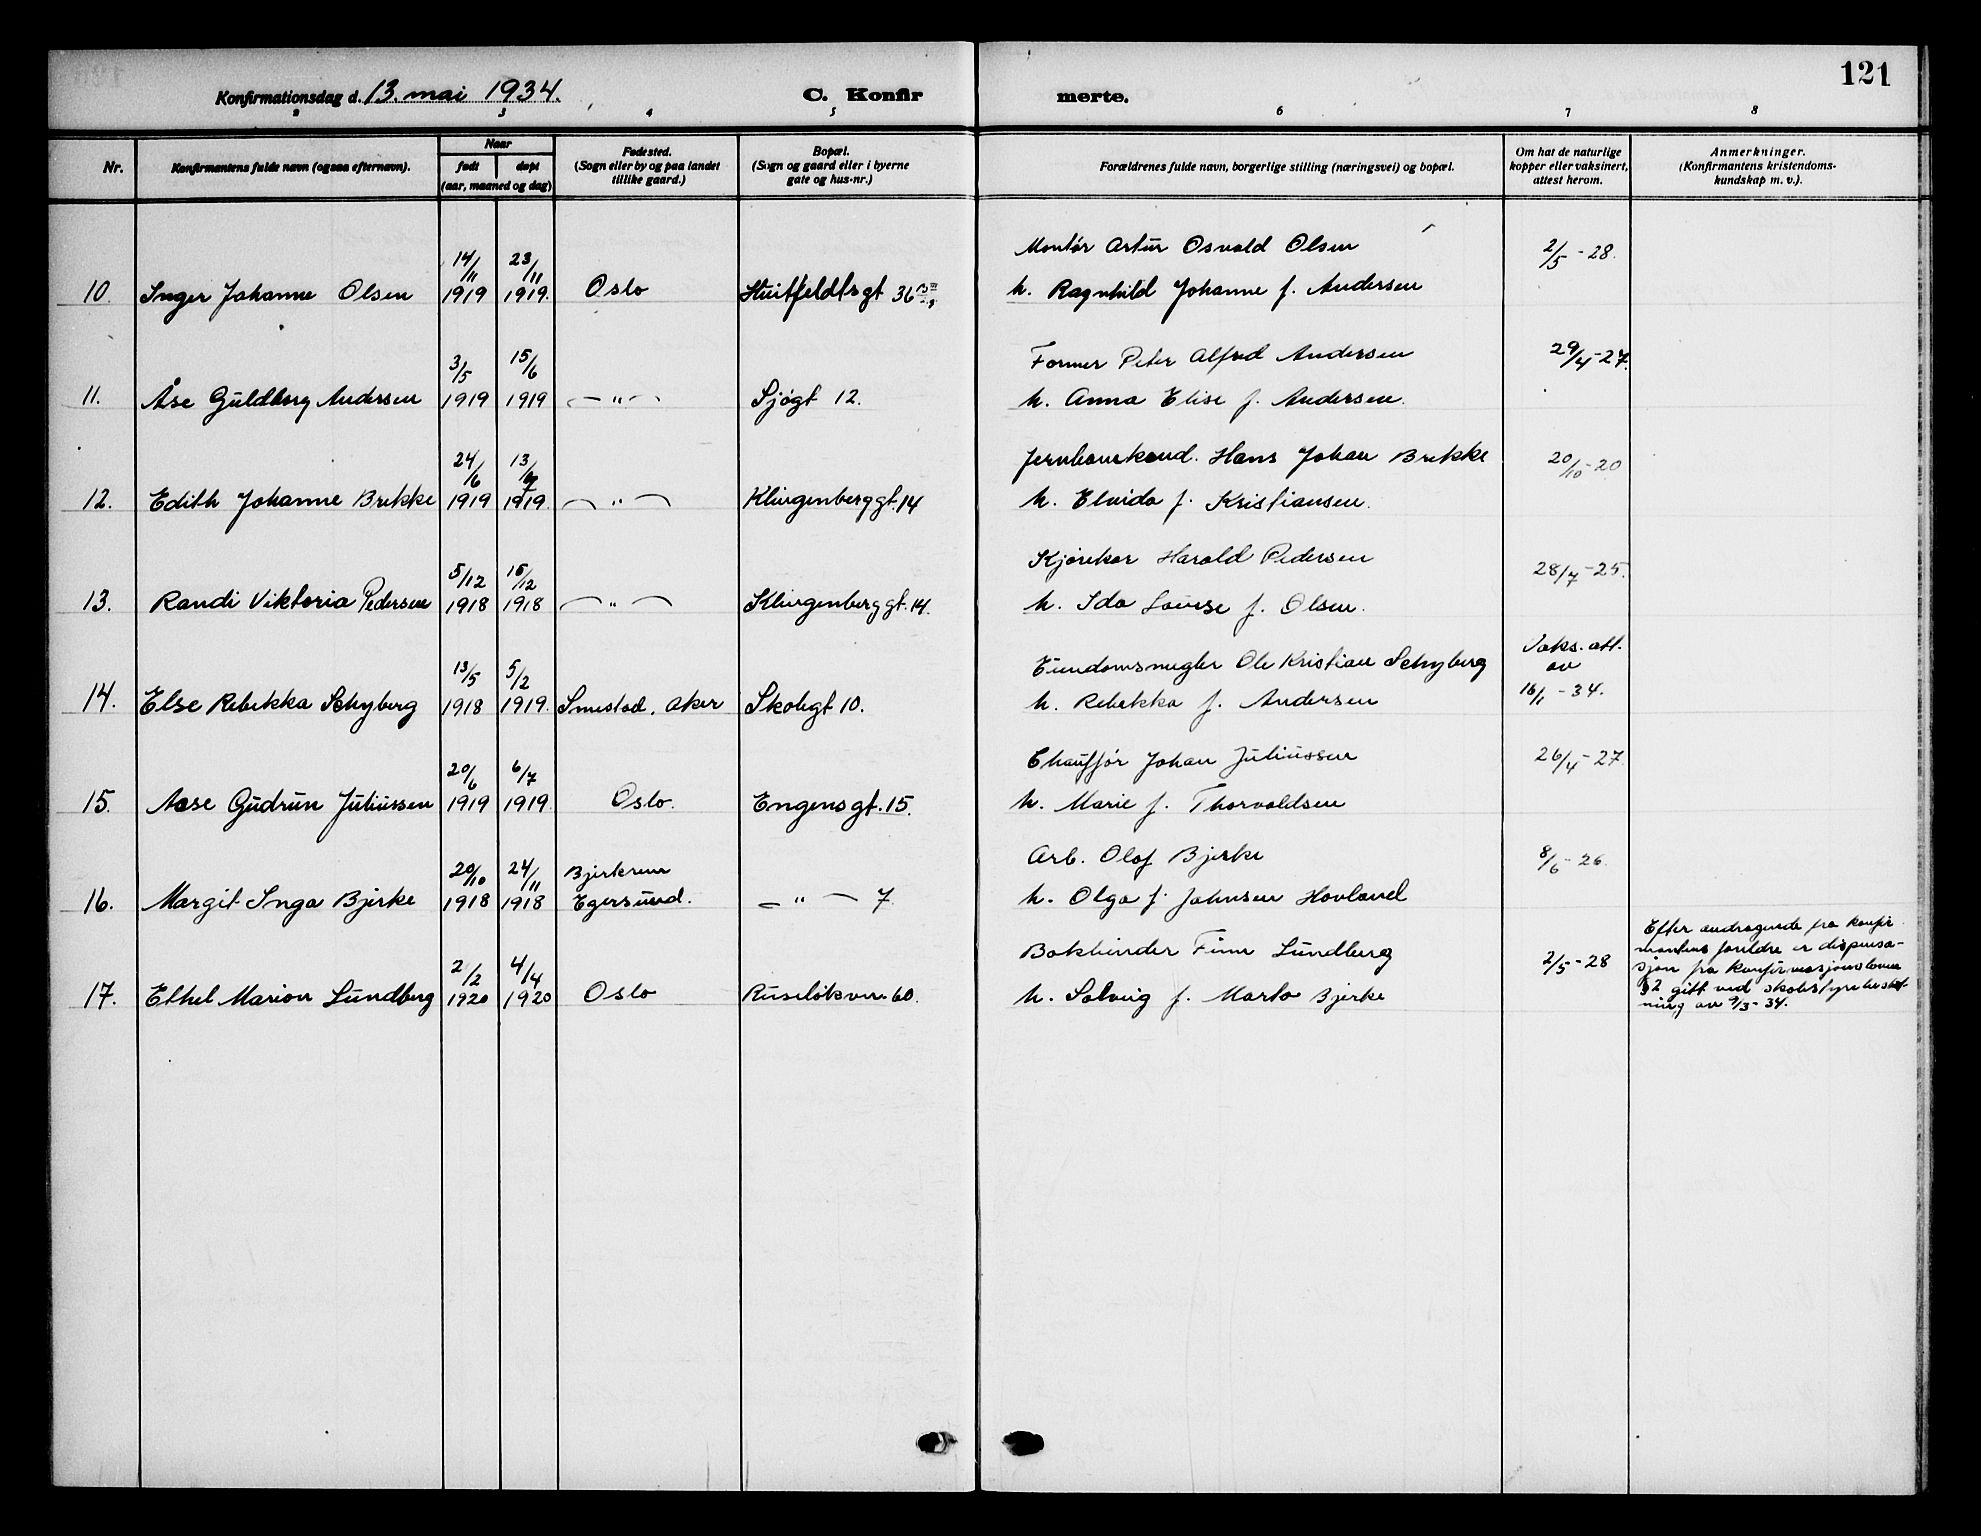 121
Konfirmationsdag d. 13. mai 1934.
C. Konfir merte.
2 3 4 5 6 7 8
Nr.
Konfirmantens fulde navn (ogsaa efternavn).
Naar
født
døpt
(aar, maaned og dag)
Fødested.
(Sogn eller by og paa landet
tillike gaard.)
Bopæl.
(Sogn og gaard eller i byerne
gate og hus-nr.)
Forældrenes fulde navn, borgerlige stilling (næringsvei) og bopæl.
Om hat de naturlige
kopper eller vaksinert,
attest herom.
Anmerkninger.
(Konfirmantens kristendoms-
kundskap m. v.).
14/11 23/11 Montør Artur Osvald Olsen 2/5 - 28.
10. Inger Johanne Olsen 1919 1919. Oslo Huitfeldtsgt 36 h. Ragnhild Johanne f. Andersen
3/5 15/6 Former Peter Alfred Andersen 29/4 - 27.
11. Åse Guldborg Andersen 1919 1919 — " — Sjøgt 12. h. Anna Elise f. Andersen.
24/6 13/ Jernbanekond. Hans Johan Brekke 20/10 - 20
12. Edith Johanne Brekke 1919 1919. — " — Klingenberggt. 14 h. Elvida f. Kristiansen.
5/12 15/12 Kjørekar Harald Pedersen 28/7 - 25.
13. Randi Viktoria Pedersen 1918 1918 — " — Klingenberggt. 14. h. Ida Lovise f. Olsen.
13/5 5/2 Eiendomsmegler Ole Kristian Schyberg Vaks. att.
av
14. Else Rebekka Schyberg 1918 1919. Smestad, Aker Skolegt 10. h. Rebekka f. Andersen 16/1 - 34.
20/6 6/7 Chauffør Johan Juliussen 26/4 - 27.
15. Aase Gudrun Juliussen 1919 1919. Oslo. Engensgt. 15. h. Marie f. Thorvaldsen
20/10 24/11 Bjerkrem Arb. Olaf Bjerke 8/6 - 26.
16. Margit Inga Bjerke 1918 1918 Egersund. — " — 7 h. Olga f. Johnsen Hovland
2/2 4/4 Bokbinder Finn Lundberg 2/5 - 28
17. Ethel Marion Lundberg 1920 1920 Oslo Ruseløkvn. 60. h. Solveig f. Marto Bjerke
Efter andragende fra konfir-
mantens foreldre er dispensa-
sjon fra konfirmasjonsloven
§ 2 gitt ved skolestyrebeslut-
ning av 9/3 - 34.